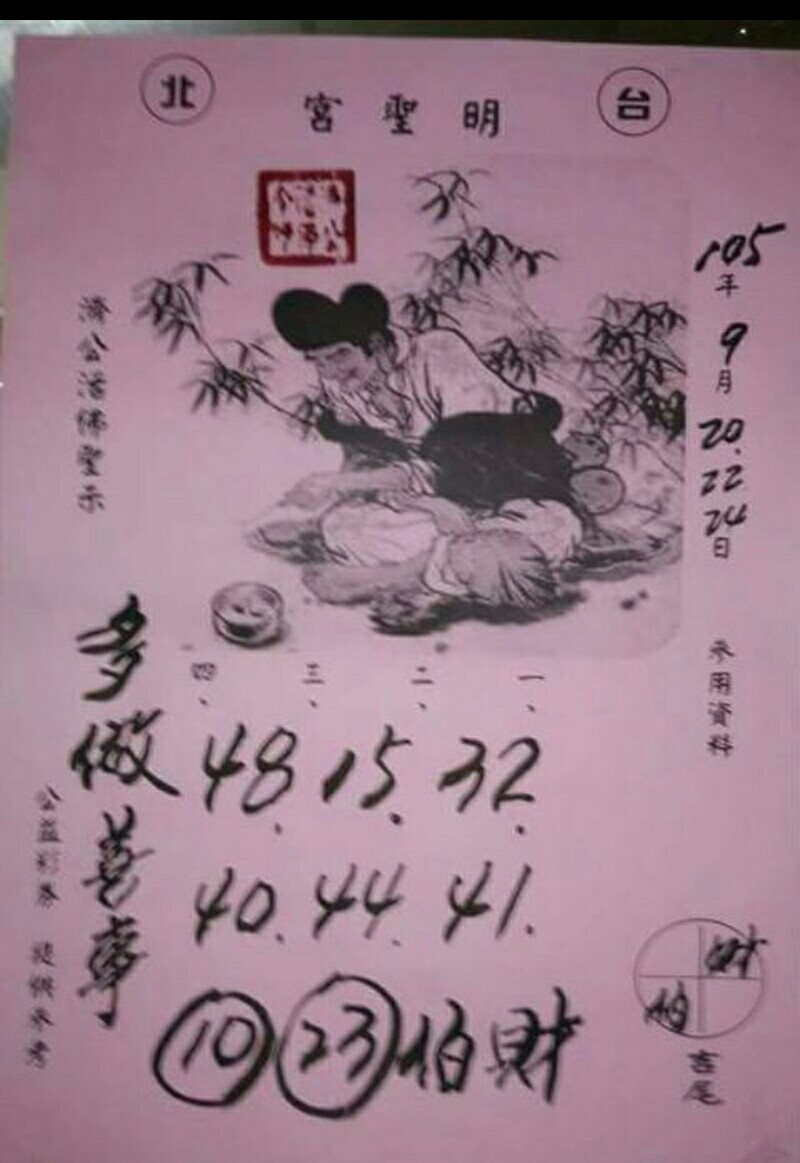 台
明聖宮
北
105年9月20.22.24日
参用資料
濟公活佛聖示
四、 三、 二、 一、
48. 15. 32.
40. 44. 41.
10 23 伯財
多做善事
公益彩券 提供參考
財
伯
吉尾